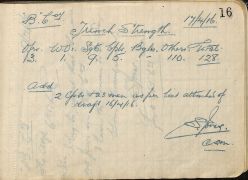 "B" Coy 17/4/16. 16
Trench Strength.
Ofrs. W.O. Sgts. Cpls. Bglrs. Others Total
3. 1. 9. 5. - 110. 128
Add
2 Cpls + 23 men as per list attached of
draft 16/4/16.